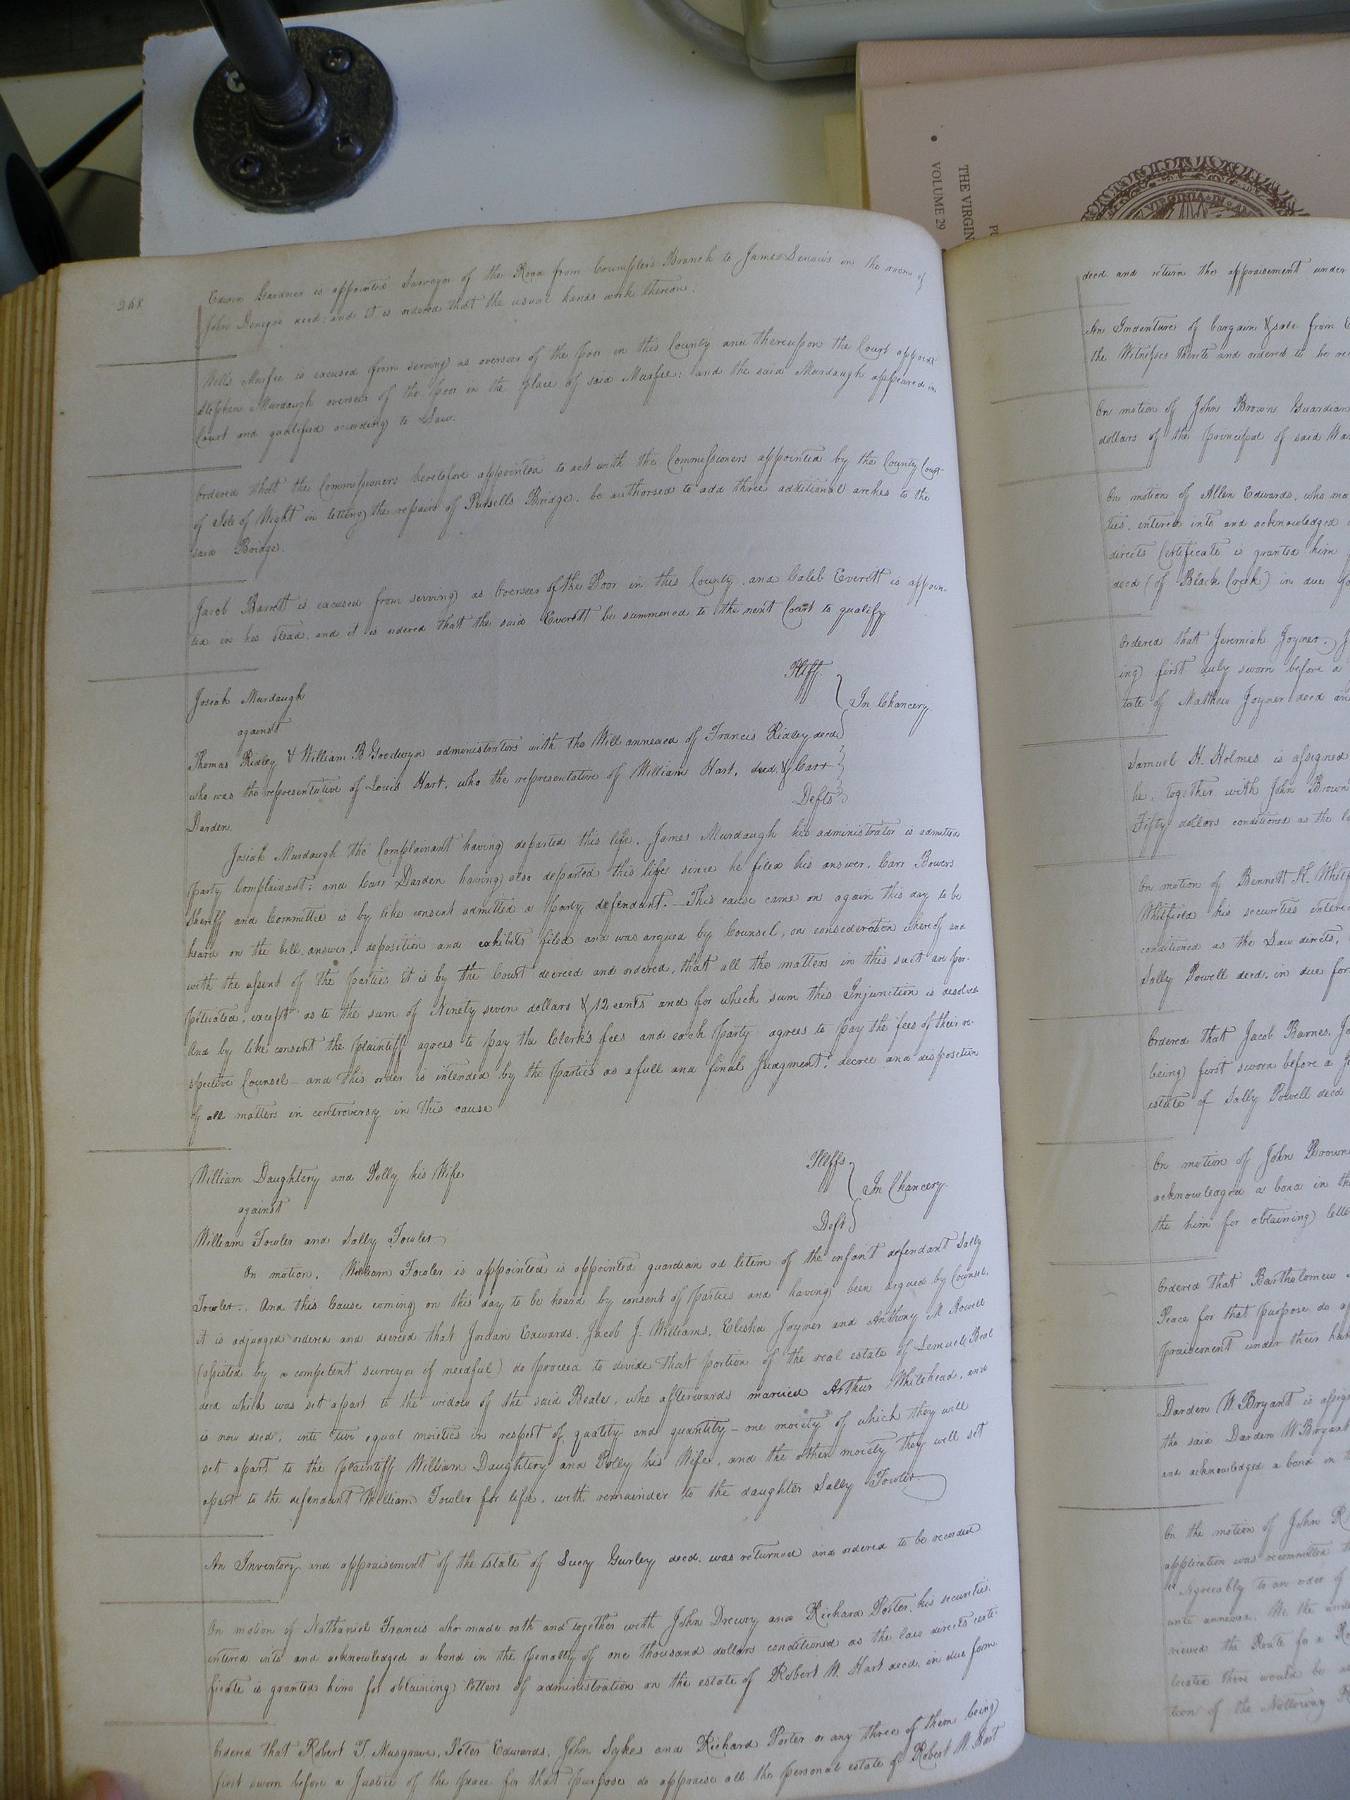 268
Edwin Gardner is appointed Surveyor of the Road from Crumpler's Branch to James in the room of
John decd: and it is ordered that the usual hands work thereon.
Wills Murfee is excused from serving as overseer of the Poor in this County and thereupon the Court appoint
Stephen Murdaugh overseer of the Poor in the place of said Murfee: and the said Murdaugh appeared in
Court and qualified according to Law.
Ordered that the Commissioners heretofore appointed to act with the Commissioners appointed by the County Court
of Isle of Wight in letting the repairs of Pursells Bridge, be authorised to add three additional arches to the
said Bridge.
Jacob Barrett is excused from serving as Overseer of the Poor in this County, and Caleb Everett is appoin-
ted in his stead, and it is ordered that the said Everett be summoned to the next Court to qualify
Josiah Murdaugh Pltff.
against In Chancery
Thomas Ridley & William B Goodwyn administrators with the Will annexed of Francis Ridley decd
who was the representative of Louis Hart, who the representative of William Hart, decd. & Carr
Darden. Defts
Josiah Murdaugh the Complainant having departed this life, James Murdaugh his administrator is admitted
party Complainant; and Carr Darden having also departed this life since he filed his answer, Carr Bowers
Sheriff and Committee is by like consent admitted a party defendant. - This cause came on again this day to be
heard on the bill, answer, deposition and exhibits filed and was argued by Counsel, on consideration whereof and
with the assent of the Parties it is by the Court decreed and ordered, that all the matters in this suit are per-
petuated, except as to the sum of Ninety seven dollars & 12 cents and for which sum this Injunction is desolved
And by like consent the plaintiff agrees to pay the Clerk's fees and each Party agrees to pay the fees of their re-
spective Counsel - and this order is intended by the parties as a full and final Judgment, decree and disposition
of all matters in controversy in this cause
William Daughtery and Polly his Wife Pltffs
against In Chancery.
William Fowler and Sally Fowler Deft
On motion, William Fowler is appointed is appointed guardian ad litem of the infant defendant Sally
Fowler. And this Cause coming on this day to be heard by consent of Parties and having been argued by Counsel,
it is adjudged ordered and decreed that Jordan Edwards, Jacob J. Williams, Elisha Joyner and Anthony M Rowell
(assisted by a competent surveyor if needful) do proceed to divide that portion of the real estate of Lemuel Beal
decd which was set apart to the widow of the said Beale, who afterwards married Arthur Whitehead, and
is now decd, into two equal moieties in respect of quality and quantity - one moiety of which they will
set apart to the plaintiff William Daughtery and Polly his Wife, and the other moiety they will set
apart to the defendant William Fowler for life, with remainder to the daughter Sally Fowler
An Inventory and appraisement of the estate of Lucy Gurley decd. was returned and ordered to be recorded
On motion of Nathaniel Francis who made oath and together with John Drewry and Richard Porter, his securities,
entered into and acknowledged a bond in the penalty of one thousand dollars conditioned as the law directs certi-
ficate is granted him for obtaining letters of administration on the estate of Robert M. Hart decd, in due form
Ordered that Robert T. Musgrave, Peter Edwards, John Sykes and Richard Porter or any three of them being
first sworn before a Justice of the peace for that purpose do appraise all the personal estate of Robert M. Hart
deed and return the appraisement under
An Indenture of bargain & sale from
the Witnesses thereto and ordered to be
On motion of John Brown Guardian
dollars of the principal of said
On motion of Allen Edwards, who
ties, entered into and acknowledged
directs Certificate is granted him
decd (of Black Creek) in due
Ordered that Jeremiah Joyner,
ing) first duly sworn before a
tate of Matthew Joyner decd
Samuel H. Holmes is assigned
he, together with John Brown
Fifty dollars conditioned as the
On motion of Bennett H.
Whitfield his securities
conditioned as the Law directs,
Sally Powell decd, in due
Ordered that Jacob Barnes,
being) first sworn before a
estate of Sally Powell decd
On motion of John
acknowledged a bond in
the him for obtaining)
Ordered that Bartholomew
Peace for that purpose do
praisement under their
Darden W. Bryant is
the said Darden W Bryant
and acknowledged a bond in
On the motion of John
application was recommitted
"Agreeably to an order of
unto annexed, We the
viewed the Route for a
located there would be
tion of the Nottoway
THE VIRGIN
VOLUME 29
VIRGINIA